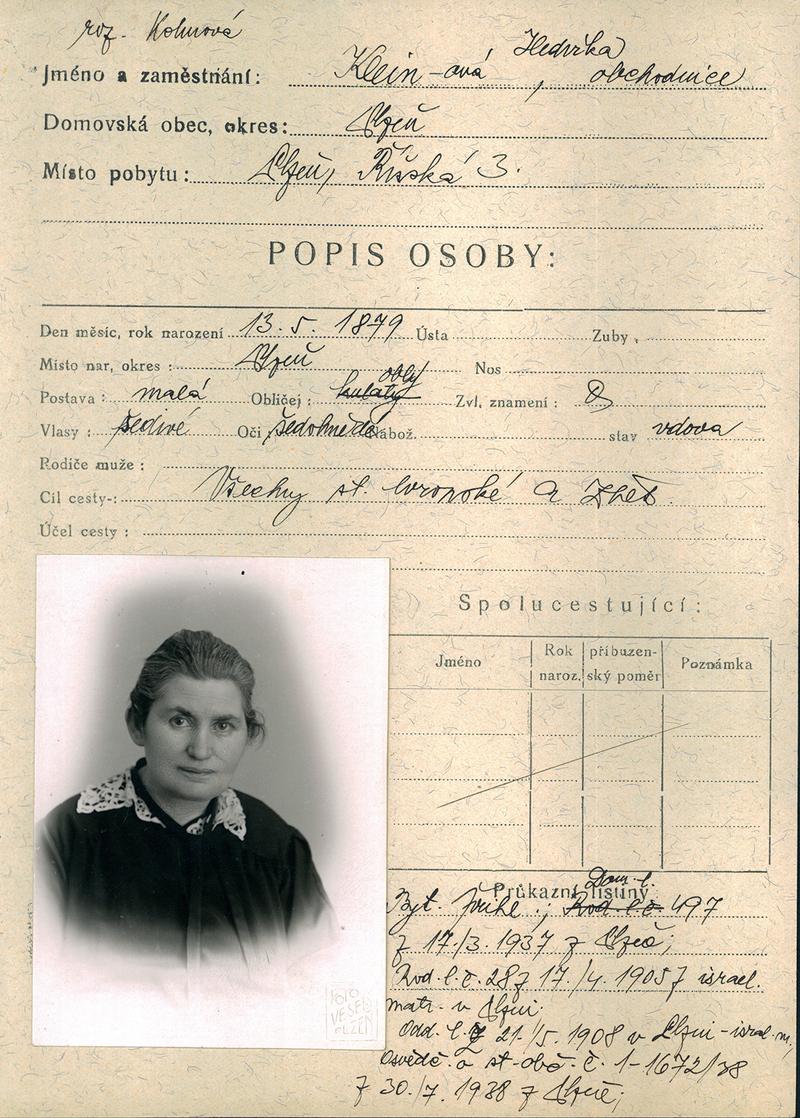 roz. Kohnová
Jméno a zaměstnání: Klein-ová Hedvika, obchodnice
Domovská obec, okres: Plzeň
Místo pobytu: Plzeň, Říšská 3.
POPIS OSOBY:
Den měsíc, rok narození 13. 5. 1879 Ústa Zuby
Místo nar, okres: Plzeň Nos
Postava: malá Obličej: kulatý oblý Zvl. znamení:
Vlasy: šedivé Oči šedohnědé Nábož. stav vdova
Rodiče muže:
Cíl cesty-: Všechny st. evropské a
Účel cesty:
Spolucestující:
Jméno Rok naroz. příbuzenský poměr Poznámka
Průkazní listiny
Byt. přihl.; Rod. l. č. Dom. l. 497
z 17./3. 1937 z Plzeň;
Rod. l. č. 28 z 17./4. 1905 z israel.
matr. v Plzni.
Odd. l. z 21./5. 1908 v Plzni - israel. m.,
Osvědč. o st-obč. č. 1-1672/38
z 30./7. 1938 z Plzně;
FOTO
VESELÝ
PLZEŇ